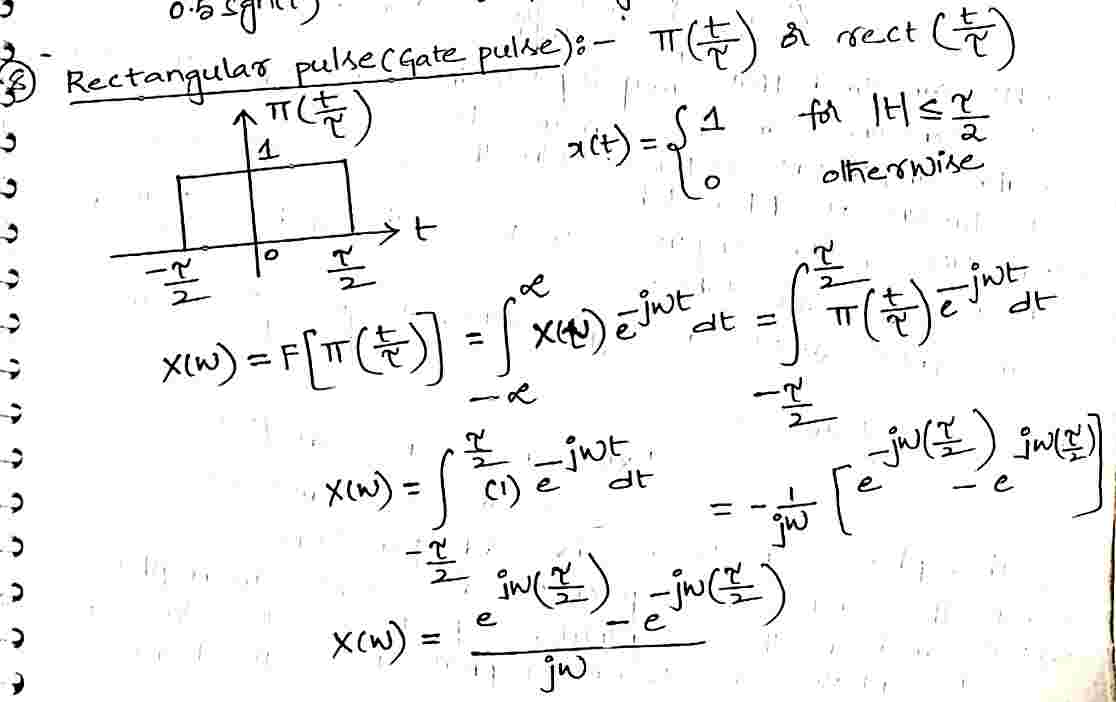 0.5 sgn(t)
8) Rectangular pulse (Gate pulse):- π(t/τ) or rect(t/τ)
π(t/τ)
1
-τ/2 0 τ/2 t
x(t) = { 1 for |t| ≤ τ/2
0 otherwise
X(w) = F[π(t/τ)] = ∫_{-∞}^{∞} x(t) e^{-jwt} dt = ∫_{-τ/2}^{τ/2} π(t/τ) e^{-jwt} dt
X(w) = ∫_{-τ/2}^{τ/2} (1) e^{-jwt} dt = -1/jw [e^{-jw(τ/2)} - e^{jw(τ/2)}]
X(w) = (e^{jw(τ/2)} - e^{-jw(τ/2)}) / jw